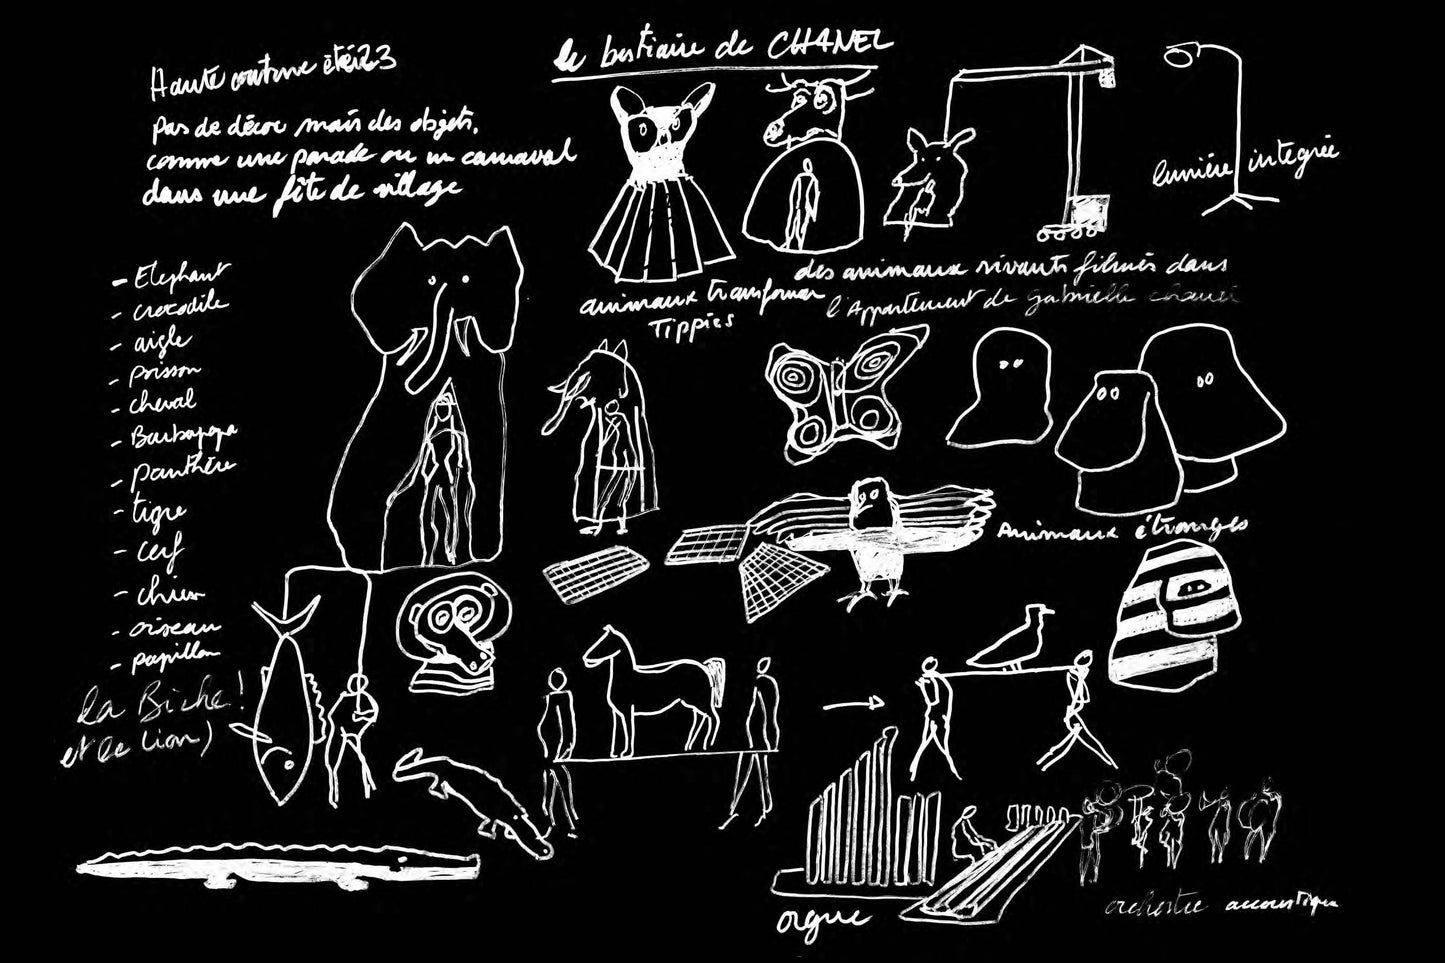 Haute couture été 23
le bestiaire de CHANEL
Pas de décor mais des objets,
comme une parade ou un carnaval
dans une fête de village
lumière integrée
- Elephant
- crocodile
- aigle
- poisson
- cheval
- Barbapapa
- panthère
- tigre
- cerf
- chien
- oiseau
- papillon
la Biche!
et le lion)
animaux transformer
Tippies
des animaux vivants filmés dans
l'Appartement de gabrielle chanel
Animaux étranges
orgue
orchestre accoustique